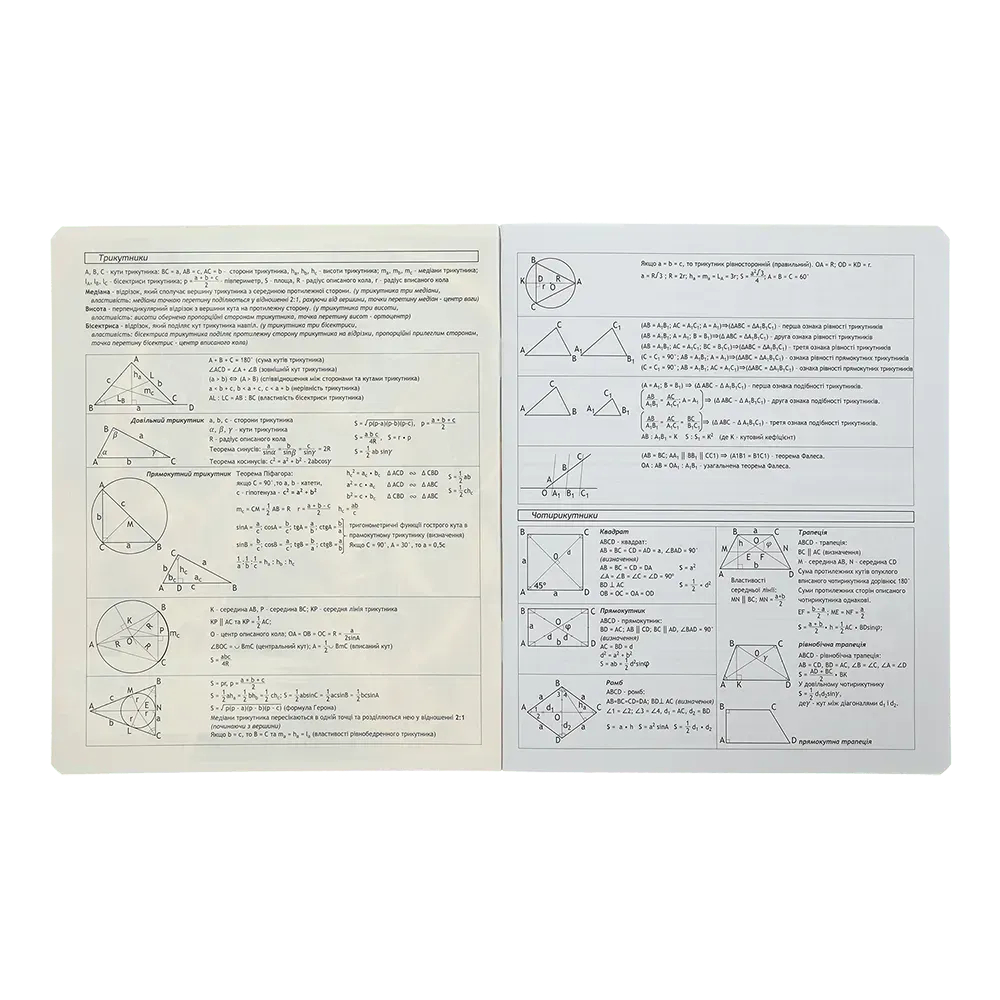 Трикутники
A, B, C - кути трикутника: BC = a, AB = c, AC = b - сторони трикутника, hₐ, h_b, h_c - висоти трикутника; mₐ, m_b, m_c - медіани трикутника;
l_A, l_B, l_C - бісектриси трикутника; p = (a + b + c)/2 півпериметр, S - площа, R - радіус описаного кола, r - радіус вписаного кола
Медіана - відрізок, який сполучає вершину трикутника з серединою протилежної сторони. (у трикутника три медіани,
властивість: медіани точкою перетину поділяються у відношенні 2:1, рахуючи від вершини, точки перетину медіан - центр ваги)
Висота - перпендикулярний відрізок з вершини кута на протилежну сторону. (у трикутника три висоти,
властивість: висоти обернено пропорційні сторонам трикутника, точка перетину висот - ортоцентр)
Бісектриса - відрізок, який поділяє кут трикутника навпіл. (у трикутника три бісектриси,
властивість: бісектриса трикутника поділяє протилежну сторону трикутника на відрізки, пропорційні прилеглим сторонам,
точка перетину бісектрис - центр вписаного кола)
A + B + C = 180° (сума кутів трикутника)
∠ACD = ∠A + ∠B (зовнішній кут трикутника)
(a > b) ⇔ (A > B) (співвідношення між сторонами та кутами трикутника)
a + b > c, b + c > a, c + a > b (нерівність трикутника)
AL : LC = AB : BC (властивість бісектриси трикутника)
Довільний трикутник
a, b, c - сторони трикутника
α, β, γ - кути трикутника
R - радіус описаного кола
Теорема синусів: a/sinα = b/sinβ = c/sinγ = 2R
Теорема косинусів: c² = a² + b² - 2abcosγ
S = √p(p-a)(p-b)(p-c), p = (a + b + c)/2
S = abc/4R, S = r • p
S = 1/2 ab sinγ
Прямокутний трикутник
Теорема Піфагора:
якщо C = 90°, то a, b - катети,
c - гіпотенуза - c² = a² + b²
h_c² = a_c • b_c Δ ACD ∾ Δ CBD
a² = c • a_c Δ ACD ∾ Δ ABC
b² = c • b_c Δ CBD ∾ Δ ABC
S = 1/2 ab
S = 1/2 ch_c
m_c = CM = 1/2 AB = R r = (a + b - c)/2 h_c = ab/c
sinA = a/c; cosA = b/c; tgA = a/b; ctgA = b/a
sinB = b/c; cosB = a/c; tgB = b/a; ctgB = a/b
тригонометричні функції гострого кута в
прямокутному трикутнику (визначення)
Якщо C = 90°, A = 30°, то a = 0,5c
1/a : 1/b : 1/c = hₐ : h_b : h_c
K - середина AB, P - середина BC; KP - середня лінія трикутника
KP || AC та KP = 1/2 AC;
O - центр описаного кола; OA = OB = OC = R = a/2sinA
∠BOC = ◡ BmC (центральний кут); A = 1/2 ◡ BmC (вписаний кут)
S = abc/4R
S = pr, p = (a + b + c)/2
S = 1/2 ahₐ = 1/2 bh_b = 1/2 ch_c; S = 1/2 absinC = 1/2 acsinB = 1/2 bcsinA
S = √p(p - a)(p - b)(p - c) (формула Герона)
Медіани трикутника пересікаються в одній точці та розділяються нею у відношенні 2:1
(починаючи з вершини)
Якщо b = c, то B = C та mₐ = hₐ = lₐ (властивості рівнобедренного трикутника)
Якщо a = b = c, то трикутник рівносторонній (правильний). OA = R; OD = KD = r.
a = R√3 ; R = 2r; hₐ = mₐ = Lₐ = 3r; S = a²√3/4; A = B = C = 60°
(AB = A₁B₁; AC = A₁C₁; A = A₁)⇒(ΔABC = ΔA₁B₁C₁) - перша ознака рівності трикутників
(AB = A₁B₁; A = A₁; B = B₁)⇒(ΔABC = ΔA₁B₁C₁) - друга ознака рівності трикутників
(AB = A₁B₁; AC = A₁C₁; BC = B₁C₁)⇒(ΔABC = ΔA₁B₁C₁) - третя ознака рівності трикутників
(C = C₁ = 90°; AB = A₁B₁; A = A₁)⇒(ΔABC = ΔA₁B₁C₁) - ознака рівності прямокутних трикутників
(C = C₁ = 90°; AB = A₁B₁; AC = A₁C₁)⇒(ΔABC = ΔA₁B₁C₁) - ознака рівності прямокутних трикутників
(A = A₁; B = B₁) ⇒ (Δ ABC ~ Δ A₁B₁C₁) - перша ознака подібності трикутників.
(AB/A₁B₁ = AC/A₁C₁; A = A₁) ⇒ (Δ ABC ~ Δ A₁B₁C₁) - друга ознака подібності трикутників.
(AB/A₁B₁ = AC/A₁C₁ = BC/B₁C₁) ⇒ (Δ ABC ~ Δ A₁B₁C₁) - третя ознака подібності трикутників.
AB : A₁B₁ = K S : S₁ = K² (де K - кутовий кефіцієнт)
(AB = BC; AA₁ || BB₁ || CC1) ⇒ (A1B1 = B1C1) - теорема Фалеса.
OA : AB = OA₁ : A₁B₁ - узагальнена теорема Фалеса.
Чотирикутники
Квадрат
ABCD - квадрат:
AB = BC = CD = AD = a, ∠BAD = 90°
(визначення)
AB = BC = CD = DA S = a²
∠A = ∠B = ∠C = ∠D = 90°
BD ⊥ AC S = 1/2 • d²
OB = OC = OA = OD
45°
Прямокутник
ABCD - прямокутник:
BD = AC; AB || CD; BC || AD, ∠BAD = 90°
(визначення)
AC = BD = d
d² = a² + b²
S = ab = 1/2 d²sinφ
Ромб
ABCD - ромб:
AB=BC=CD=DA; BD⊥ AC (визначення)
∠1 = ∠2; ∠3 = ∠4, d₁ = AC, d₂ = BD
S = a • h S = a² sinA S = 1/2 d₁ • d₂
Властивості
середньої лінії:
MN || BC; MN = (a+b)/2
Трапеція
ABCD - трапеція:
BC || AC (визначення)
M - середина AB, N - середина CD
Сума протилежних кутів опуклого
вписаного чотирикутника дорівнює 180°
Суми протилежних сторін описаного
чотирикутника однакові.
EF = (b - a)/2 ; ME = NF = a/2
S = (a + b)/2 • h = 1/2 AC • BDsinφ;
рівнобічна трапеція
ABCD - рівнобічна трапеція:
AB = CD, BD = AC, ∠B = ∠C, ∠A = ∠D
S = (AD + BC)/2 • BK
У довільному чотирикутнику
S = 1/2 d₁d₂sinγ,
деγ - кут між діагоналями d₁ і d₂.
прямокутна трапеція